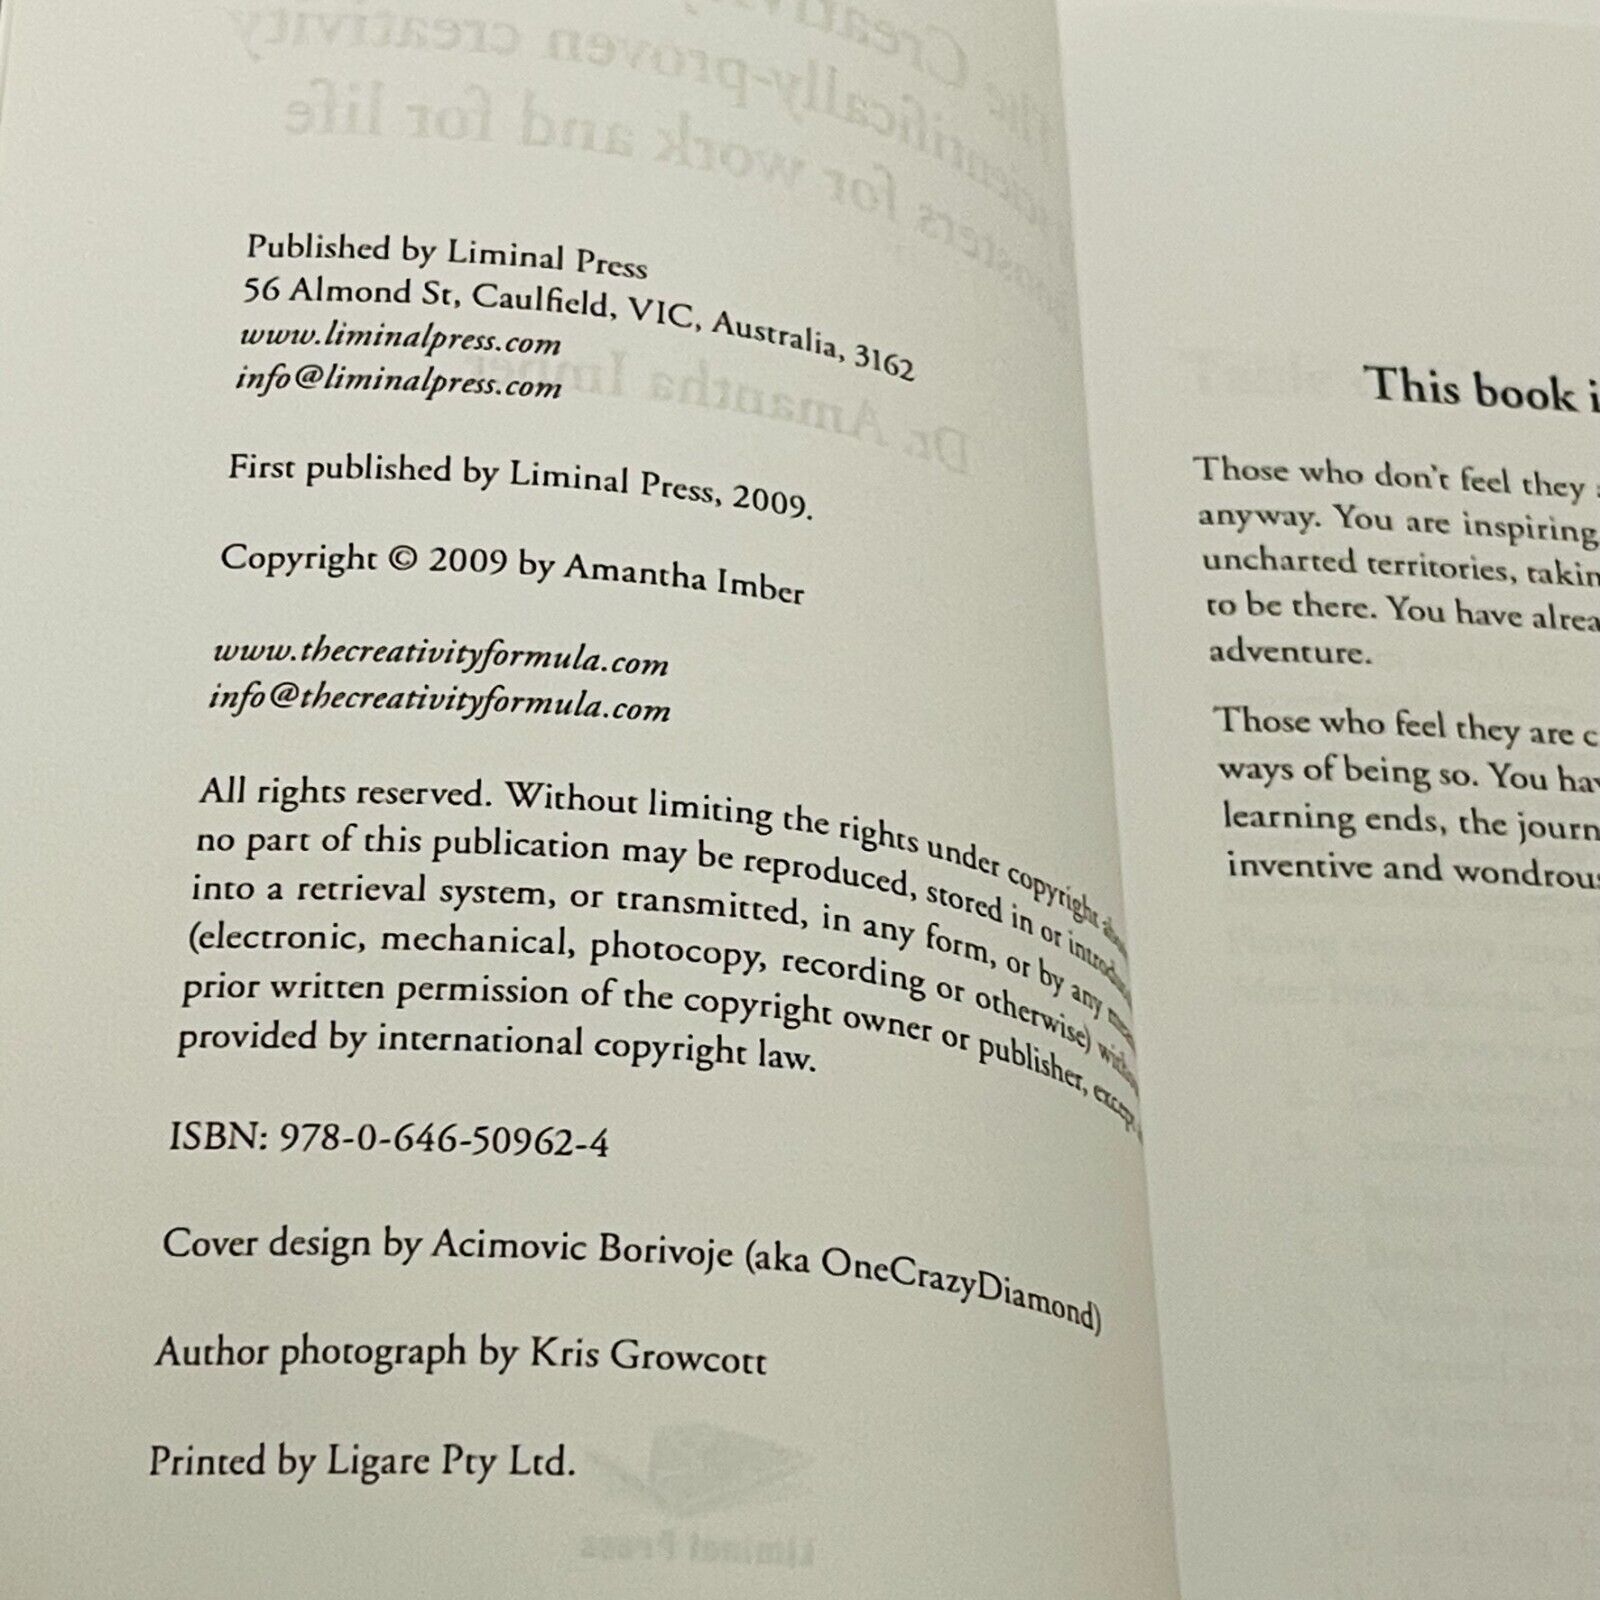 Published by Liminal Press
56 Almond St, Caulfield, VIC, Australia, 3162
www.liminalpress.com
info@liminalpress.com
First published by Liminal Press, 2009.
Copyright © 2009 by Amantha Imber
www.thecreativityformula.com
info@thecreativityformula.com
All rights reserved. Without limiting the rights under copyright
no part of this publication may be reproduced, stored in or
into a retrieval system, or transmitted, in any form, or by any
(electronic, mechanical, photocopy, recording or otherwise)
prior written permission of the copyright owner or publisher,
provided by international copyright law.
ISBN: 978-0-646-50962-4
Cover design by Acimovic Borivoje (aka OneCrazyDiamond)
Author photograph by Kris Growcott
Printed by Ligare Pty Ltd.
This book
Those who don't feel they
anyway. You are inspiring
uncharted territories,
to be there. You have
adventure.
Those who feel they are
ways of being so. You
learning ends, the
inventive and